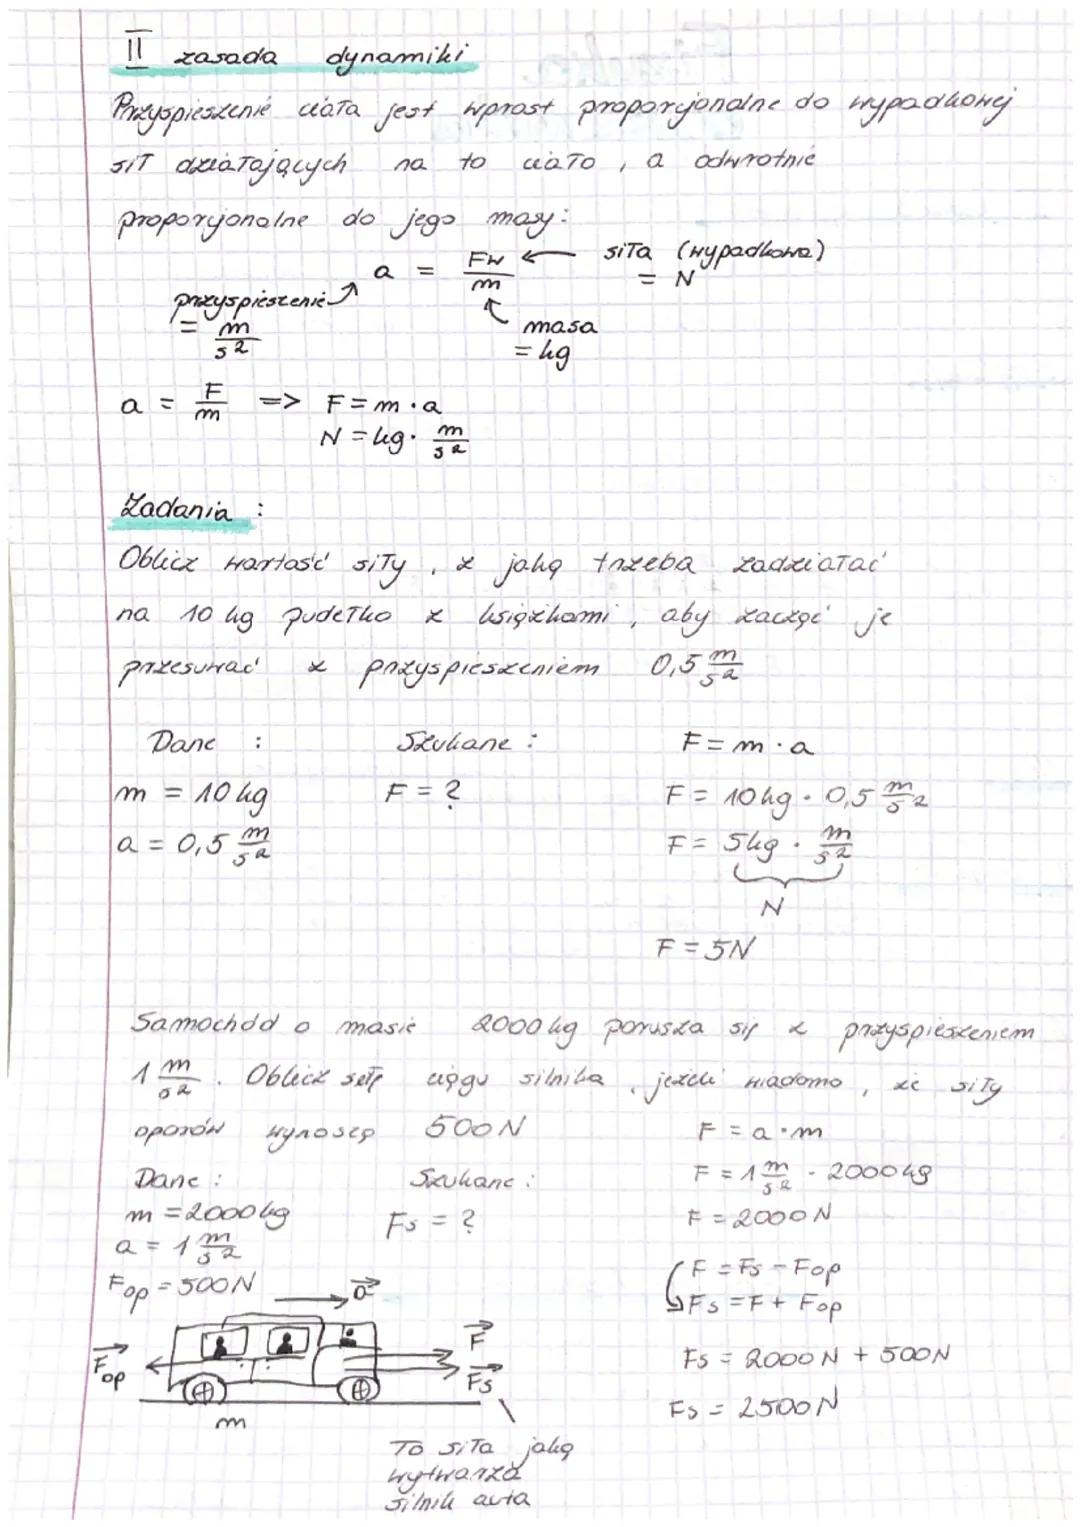 II zasada dynamiki
Przyspieszenie ciała jest wprost proporcjonalne do wypadkowej
sił działających na to ciało, a odwrotnie
proporcjonalne do jego masy:
a = Fw/m ← siła (wypadkowa) = N
przyspieszenie = m/s²
masa = kg
a = F/m => F = m · a
N = kg · m/s²
Zadania :
Oblicz wartość siły, z jaką trzeba zadziałać
na 10 kg pudełko z książkami, aby zacząć je
przesuwać z przyspieszeniem 0,5 m/s²
Dane : Szukane : F = m · a
m = 10 kg F = ? F = 10 kg · 0,5 m/s²
a = 0,5 m/s² F = 5 kg · m/s²
N
F = 5N
Samochód o masie 2000 kg porusza się z przyspieszeniem
1 m/s². Oblicz siłę ciągu silnika, jeżeli wiadomo, że siły
oporów wynoszą 500N F = a · m
Dane : Szukane : F = 1 m/s² · 2000 kg
m = 2000 kg Fs = ? F = 2000 N
a = 1 m/s²
Fop = 500N a F = Fs - Fop
Fs = F + Fop
Fop F
Fs Fs = 2000 N + 500N
m Fs = 2500N
To siła jaką
wytwarza
silnik auta